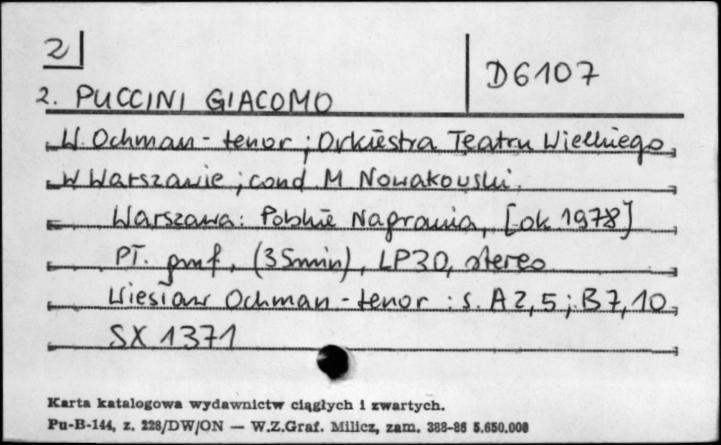 2
D6107
2. PUCCINI GIACOMO
W. Ochman - tenor ; Orkiestra Teatru Wielkiego
w Warszawie ; cond. M Nowakowski.
Warszawa: Polskie Nagrania, [ok. 1978]
PŁ. gmf, (35min), LP30, stereo
Wiesław Ochman - tenor : s. A 2, 5 ; B 7, 10
SX 1371
Karta katalogowa wydawnictw ciągłych i zwartych.
Pu-B-144, z. 228/DW/ON — W.Z.Graf. Milicz, zam. 388-86 5.650.000